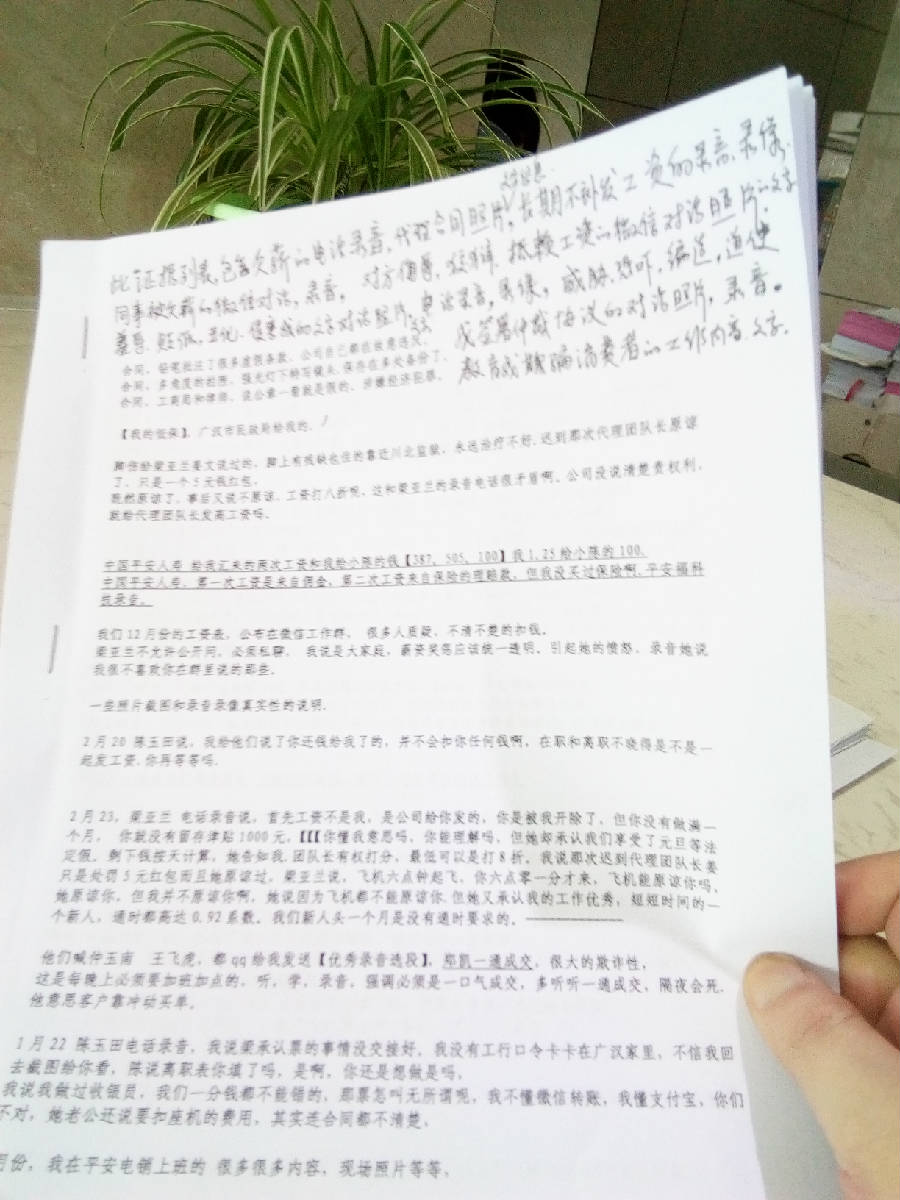 此证据列表,包含欠薪的电话录音,代理合同照片,长期不补发工资的录音.录像,
同事被欠薪的微信对话,录音,对方侮辱,抵赖工资的微信对话照片
电话录音,录像,威胁.恐吓,
我签署仲裁协议的对话照片,录音。
教唆欺骗消费者的工作内容.文字.
合同,铅笔批注了很多虚假条款,公司自己都在故意违反,
合同,多角度的拍照,强光灯下特写镜头,保存在多处备份了,
合同,工商局和律师,说公章一看就是假的,涉嫌经济犯罪,
【我的低保】,广汉市民政局给我的,
脚伤给梁亚兰姜文说过的,脚上有残缺也住的靠近川北监狱,永远治疗不好.迟到那次代理团队长原谅
了,只是一个5元钱红包,
既然原谅了,事后又说不原谅.工资打八折呢,这和梁亚兰的录音电话很矛盾啊。公司没说清楚责权利,
就给代理团队长发高工资吗,
中国平安人寿 给我汇来的两次工资和我给小陈的钱【387,505,100】我1.25给小陈的100,
中国平安人寿,第一次工资是来自佣金,第二次工资来自保险的理赔款,但我没买过保险啊.平安福科
技录音。
我们12月份的工资表,公布在微信工作群, 很多人质疑,不清不楚的扣钱。
梁亚兰不允许公开问,必须私聊, 我说是大家庭,薪资奖惩应该统一透明,引起她的愤怒,录音她说
我很不喜欢你在群里说的那些,
一些照片截图和录音录像真实性的说明.
2月20 陈玉田说,我给他们说了你还钱给我了的,并不会扣你任何钱啊,在职和离职不晓得是不是一
起发工资.你再等等吗.
2月23,梁亚兰 电话录音说,首先工资不是我,是公司给你发的,你是被我开除了,但你没有做满一
个月, 你就没有留存津贴1000元,【【【你懂我意思吗,你能理解吗,但她却承认我们享受了元旦等法
定假。剩下钱按天计算,她告知我.团队长有权打分,最低可以是打8折。我说那次迟到代理团队长姜
只是处罚5元红包而且她原谅过,梁亚兰说,飞机六点钟起飞,你六点零一分才来,飞机能原谅你吗,
她原谅你,但我并不原谅你啊,她说因为飞机都不能原谅你.但她又承认我的工作优秀,短短时间的一
个新人,通时都高达0.92系数。我们新人头一个月是没有通时要求的。
他们喊仲玉南 王飞虎,都qq给我发送【优秀录音选段】,郑凯一通成交,很大的欺诈性,
这是每晚上必须要加班加点的,听,学,录音,强调必须是一口气成交,多听听一通成交,隔夜会死.
他意思客户靠冲动买单。
1月22 陈玉田电话录音,我说梁承认票的事情没交接好,我没有工行口令卡卡在广汉家里,不信我回
去截图给你看,陈说离职表你填了吗,是啊,你还是想做是吗,
我说我做过收银员,我们一分钱都不能错的,那票怎叫无所谓呢,我不懂微信转账,我懂支付宝,你们
不对,她老公还说要扣座机的费用,其实连合同都不清楚,
月份,我在平安电销上班的 很多很多内容,现场照片等等,